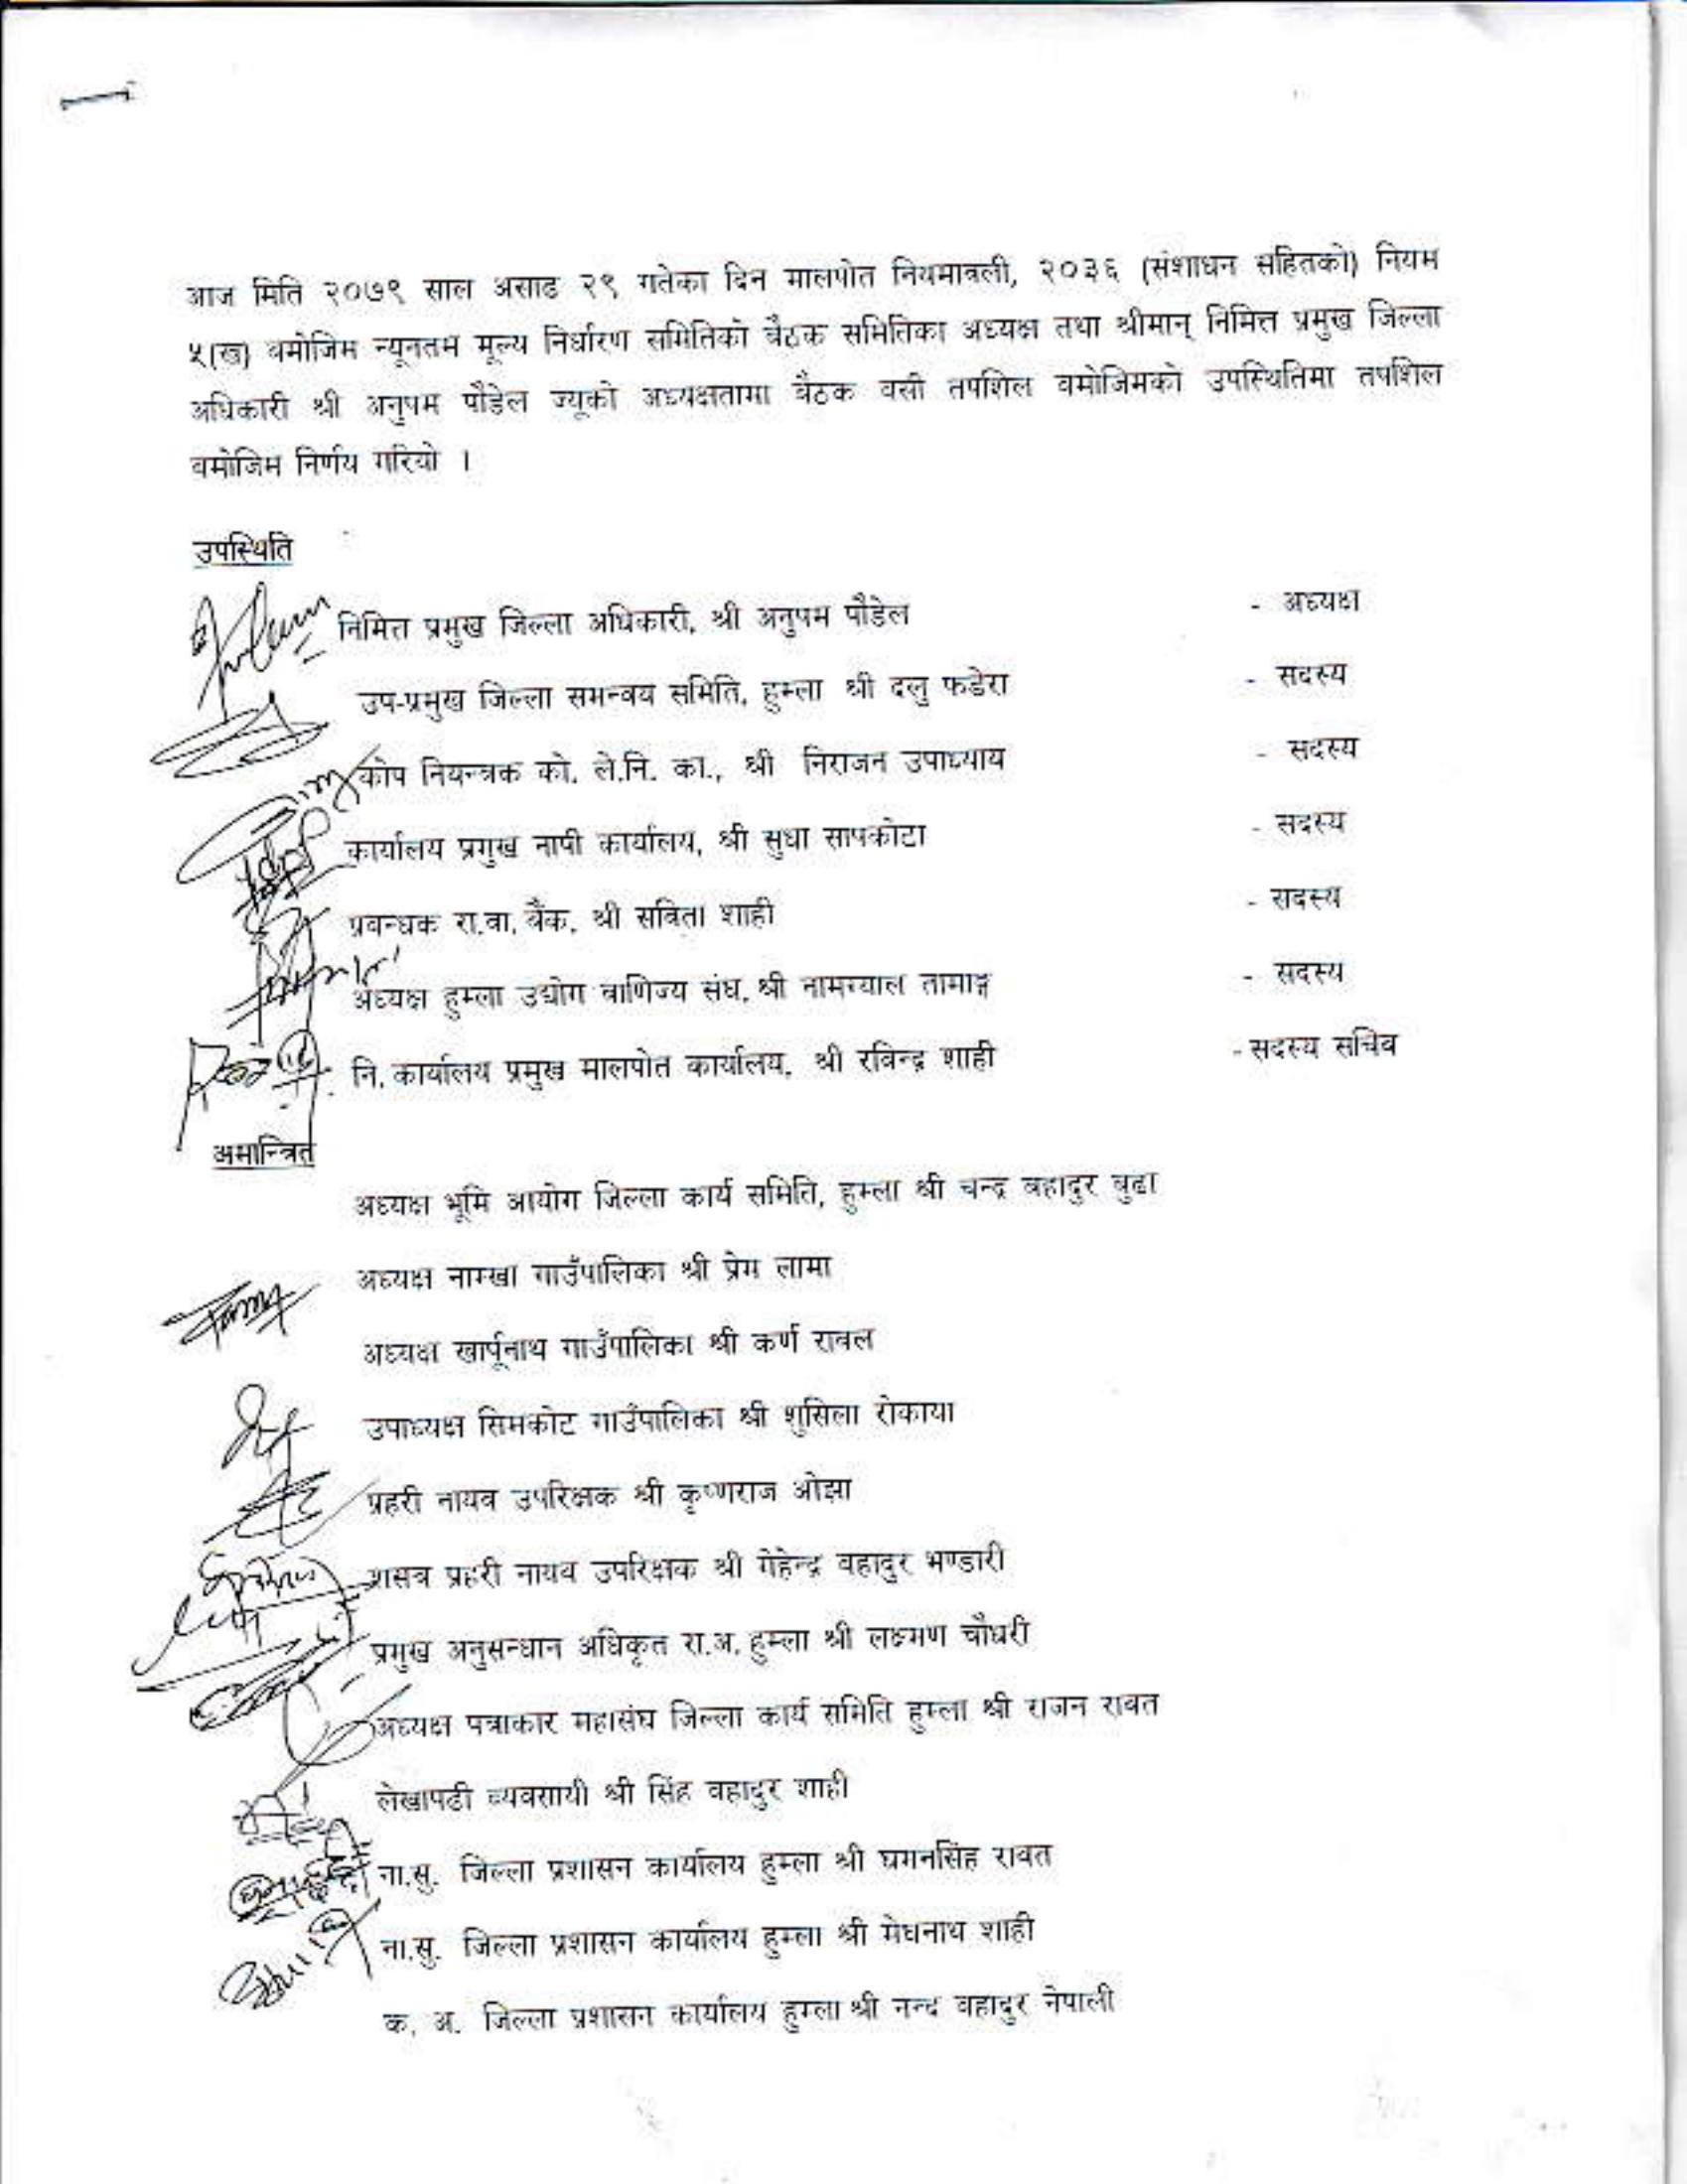 आज मिति २०७९ साल असाढ २९ गतेका दिन मालपोत नियमावली, २०३६ (संशाधन सहितको) नियम
५(ख) बमोजिम न्यूनतम मूल्य निर्धारण समितिको बैठक समितिका अध्यक्ष तथा श्रीमान् निमित्त प्रमुख जिल्ला
अधिकारी श्री अनुपम पौडेल ज्यूको अध्यक्षतामा बैठक वसी तपशिल वमोजिमको उपस्थितिमा तपशिल
बमोजिम निर्णय गरियो ।
उपस्थिति
निमित्त प्रमुख जिल्ला अधिकारी, श्री अनुपम पौडेल - अध्यक्ष
उप-प्रमुख जिल्ला समन्वय समिति, हुम्ला श्री दलु फडेरा - सदस्य
कोप नियन्त्रक को. ले.नि. का., श्री निराजन उपाध्याय - सदस्य
कार्यालय प्रमुख नापी कार्यालय, श्री सुधा सापकोटा - सदस्य
प्रवन्धक रा.वा. बैंक, श्री सविता शाही - सदस्य
अध्यक्ष हुम्ला उद्योग वाणिज्य संघ, श्री नामग्याल तामाङ्ग - सदस्य
नि. कार्यालय प्रमुख मालपोत कार्यालय, श्री रविन्द्र शाही - सदस्य सचिव
अमान्त्रित
अध्यक्ष भूमि आयोग जिल्ला कार्य समिति, हुम्ला श्री चन्द्र बहादुर बुढा
अध्यक्ष नाम्खा गाउँपालिका श्री प्रेम लामा
अध्यक्ष खार्पूनाथ गाउँपालिका श्री कर्ण रावल
उपाध्यक्ष सिमकोट गाउँपालिका श्री शुसिला रोकाया
प्रहरी नायव उपरिक्षक श्री कृष्णराज ओझा
शसत्र प्रहरी नायव उपरिक्षक श्री गेहेन्द्र वहादुर भण्डारी
प्रमुख अनुसन्धान अधिकृत रा.अ. हुम्ला श्री लक्ष्मण चौधरी
अध्यक्ष पत्राकार महासंघ जिल्ला कार्य समिति हुम्ला श्री राजन रावत
लेखापढी व्यवसायी श्री सिंह वहादुर शाही
ना.सु. जिल्ला प्रशासन कार्यालय हुम्ला श्री घमनसिंह रावत
ना.सु. जिल्ला प्रशासन कार्यालय हुम्ला श्री मेघनाथ शाही
क. अ. जिल्ला प्रशासन कार्यालय हुम्ला श्री नन्द वहादुर नेपाली